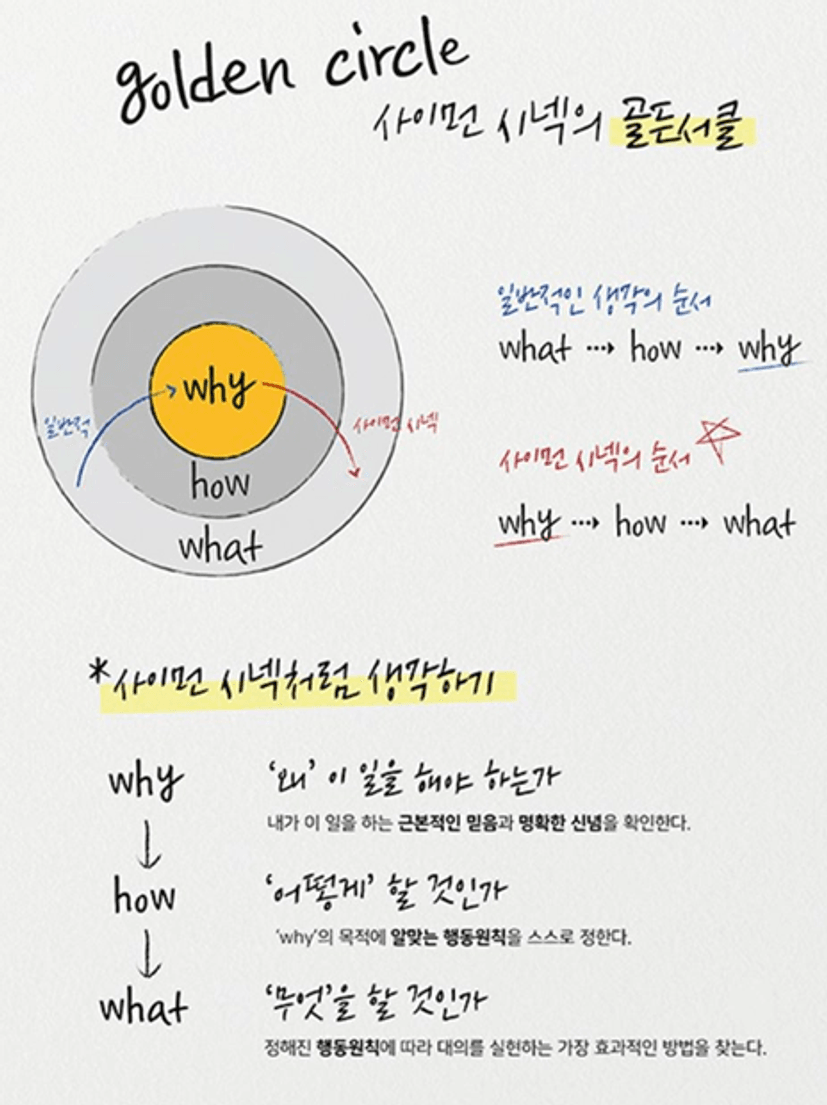 golden circle
사이먼 시넥의 골든서클
why
how
what
일반적
사이먼 시넥
일반적인 생각의 순서
what ···→ how ···→ why
사이먼 시넥의 순서
why ···→ how ···→ what
*사이먼 시넥처럼 생각하기
why
'왜' 이 일을 해야 하는가
내가 이 일을 하는 근본적인 믿음과 명확한 신념을 확인한다.
how
'어떻게' 할 것인가
'why'의 목적에 알맞는 행동원칙을 스스로 정한다.
what
'무엇'을 할 것인가
정해진 행동원칙에 따라 대의를 실현하는 가장 효과적인 방법을 찾는다.